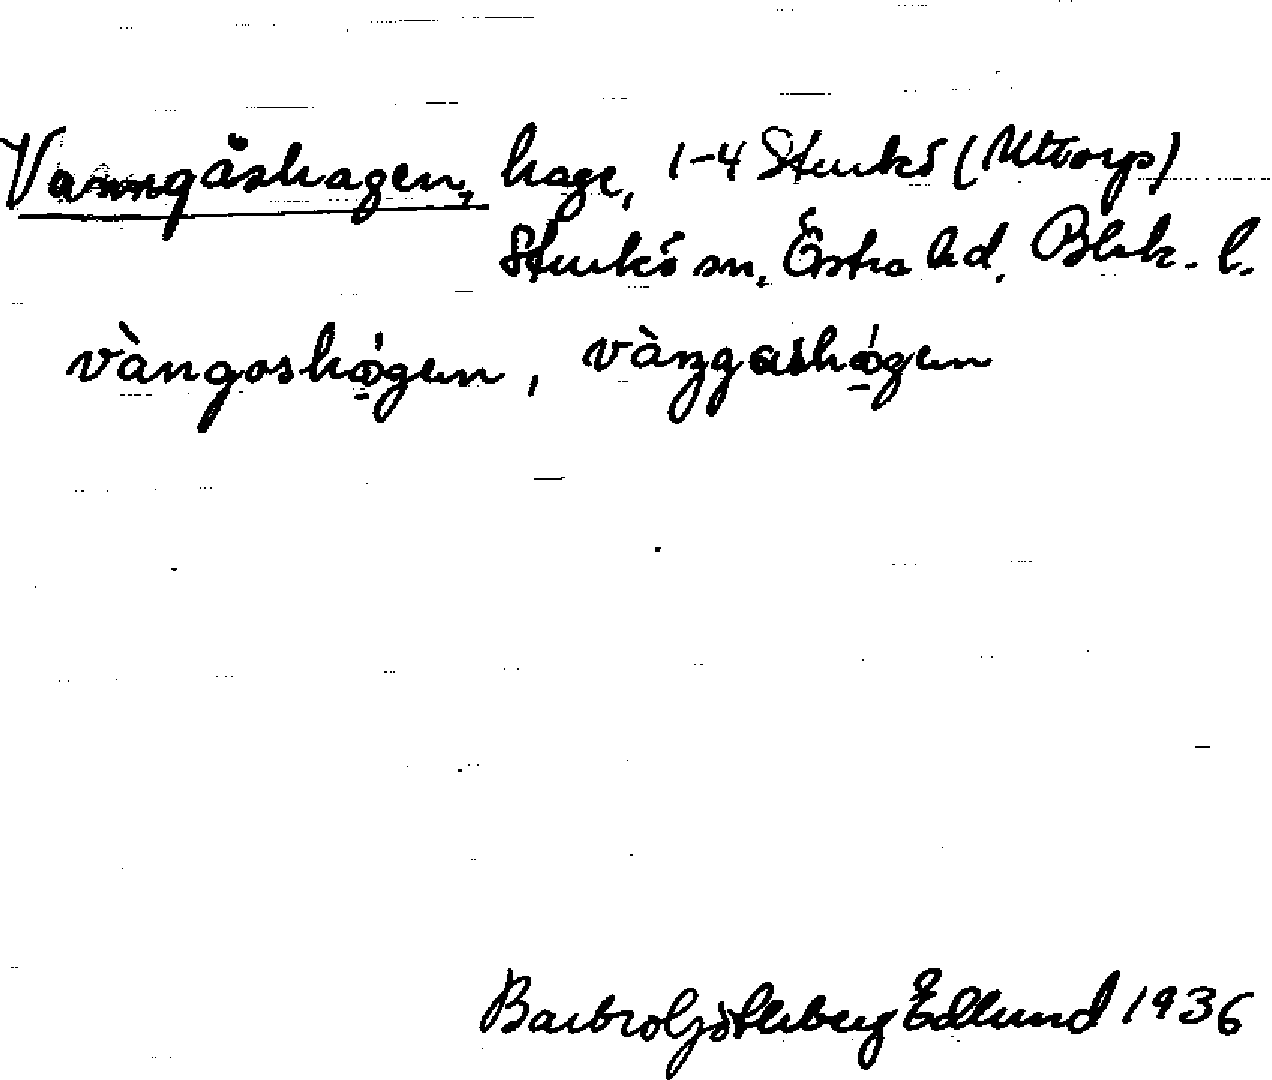 Vanngåshagen, hage, 1-4 Sturkö (Uttorp)
Sturkö sn, Östra hd, Blek. l.
vàngoshǫ́gen, vàngashǫ́gen
Barbro Götherberg Edlund 1936